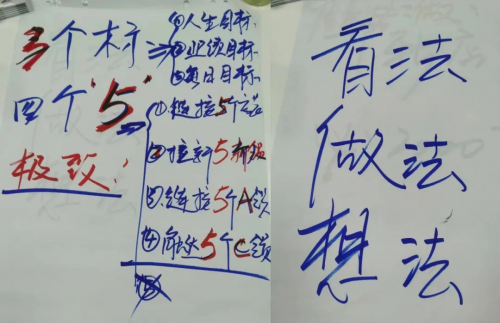 3个标
①人生目标
②业绩目标
③每日目标
四个"5"
①链接5个
②拉新5
③链接5个A级
④触达5个C级
极致:
看法
做法
想法